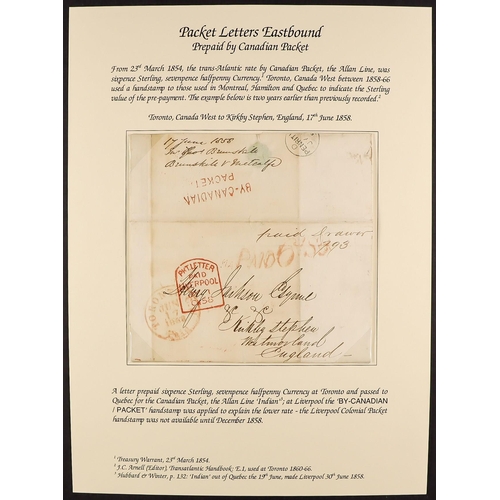 Packet Letters Eastbound
Prepaid by Canadian Packet
From 23rd March 1854, the trans-Atlantic rate by Canadian Packet, the Allan Line, was
sixpence Sterling, sevenpence halfpenny Currency.1 Toronto, Canada West between 1858-66
used a handstamp to those used in Montreal, Hamilton and Quebec to indicate the Sterling
value of the pre-payment. The example below is two years earlier than previously recorded.2
Toronto, Canada West to Kirkby Stephen, England, 17th June 1858.
17 June 1858
Brunskill & Metcalfe
BY-CANADIAN
PACKET.
paid drawer
393
PKT. LETTER
PAID
LIVERPOOL
Jackson Esqre
Kirkby Stephen
Westmorland
England
A letter prepaid sixpence Sterling, sevenpence halfpenny Currency at Toronto and passed to
Quebec for the Canadian Packet, the Allan Line 'Indian'3; at Liverpool the 'BY-CANADIAN
/ PACKET' handstamp was applied to explain the lower rate - the Liverpool Colonial Packet
handstamp was not available until December 1858.
1 Treasury Warrant, 23rd March 1854.
2 J.C. Arnell (Editor) Transatlantic Handbook; E.1, used at Toronto 1860-66.
3 Hubbard & Winter, p. 132: 'Indian' out of Quebec the 19th June, made Liverpool 30th June 1858.